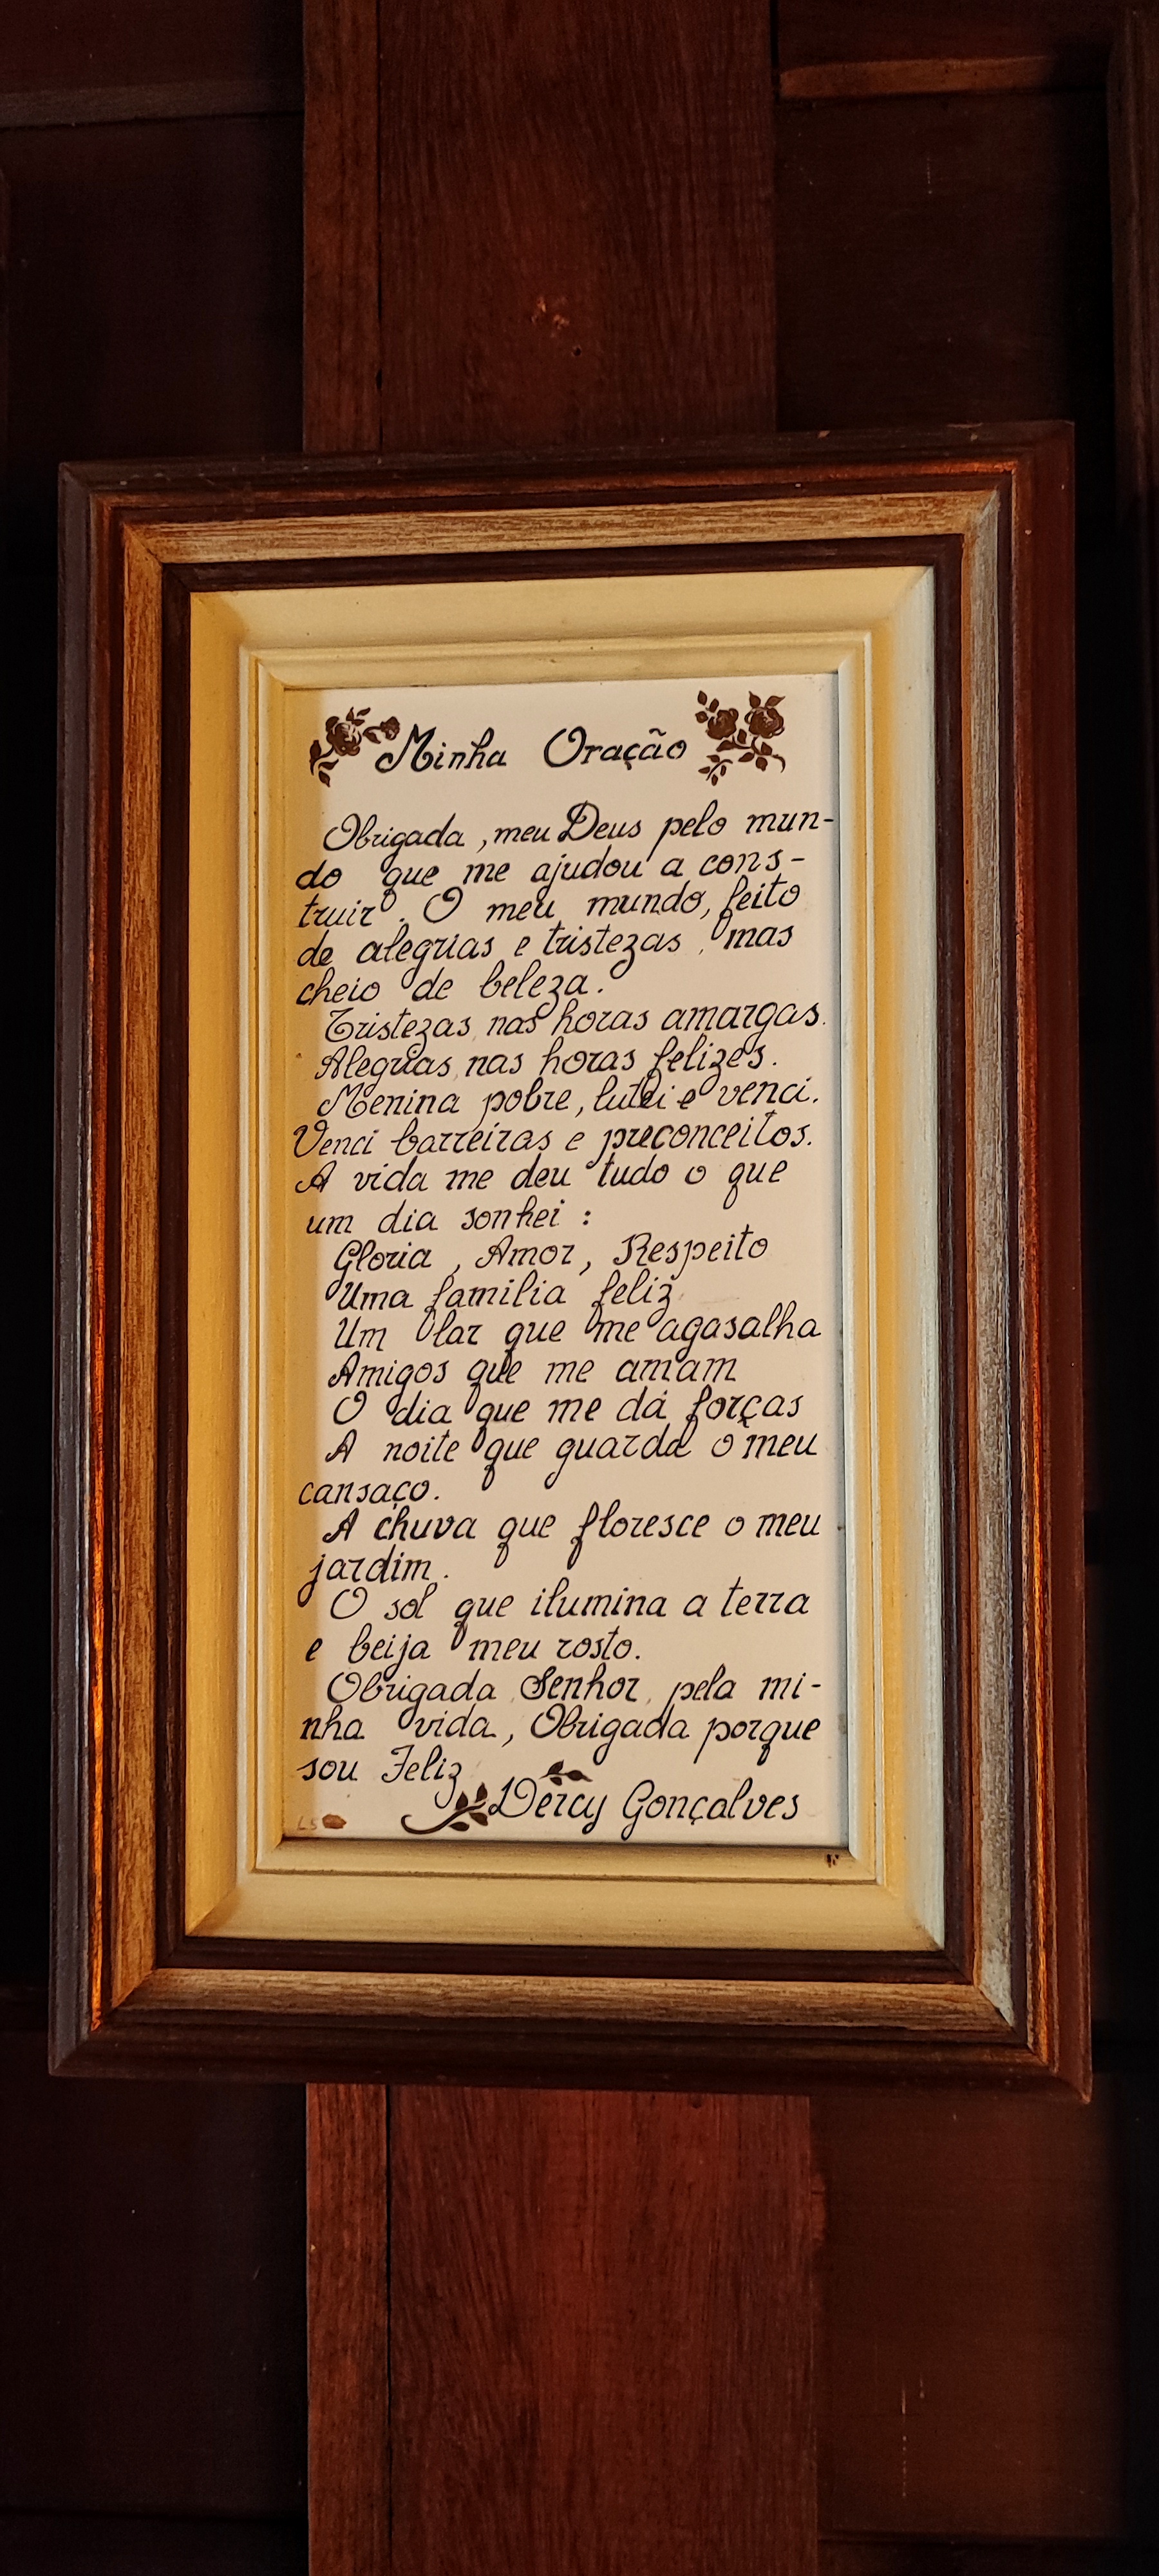 Minha Oração
Obrigada, meu Deus pelo mun-
do que me ajudou a cons-
truir. O meu mundo, feito
de alegrias e tristezas, mas
cheio de beleza.
Tristezas, nas horas amargas.
Alegrias, nas horas felizes.
Menina pobre, lutei e venci.
Venci barreiras e preconceitos.
A vida me deu tudo o que
um dia sonhei :
Gloria, Amor, Respeito
Uma familia feliz
Um lar que me agasalha
Amigos que me amam
O dia que me dá forças
A noite que guarda o meu
cansaço.
A chuva que floresce o meu
jardim.
O sol que ilumina a terra
e beija meu rosto.
Obrigada, Senhor, pela mi-
nha vida, Obrigada porque
sou Feliz
Dercy Gonçalves